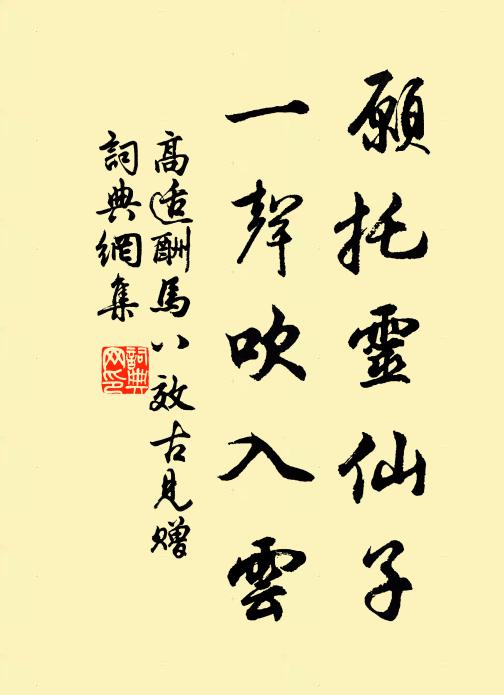 願托靈仙子
一聲吹入雲
高适酬馬八效古見贈
詞典網集
詞典网印